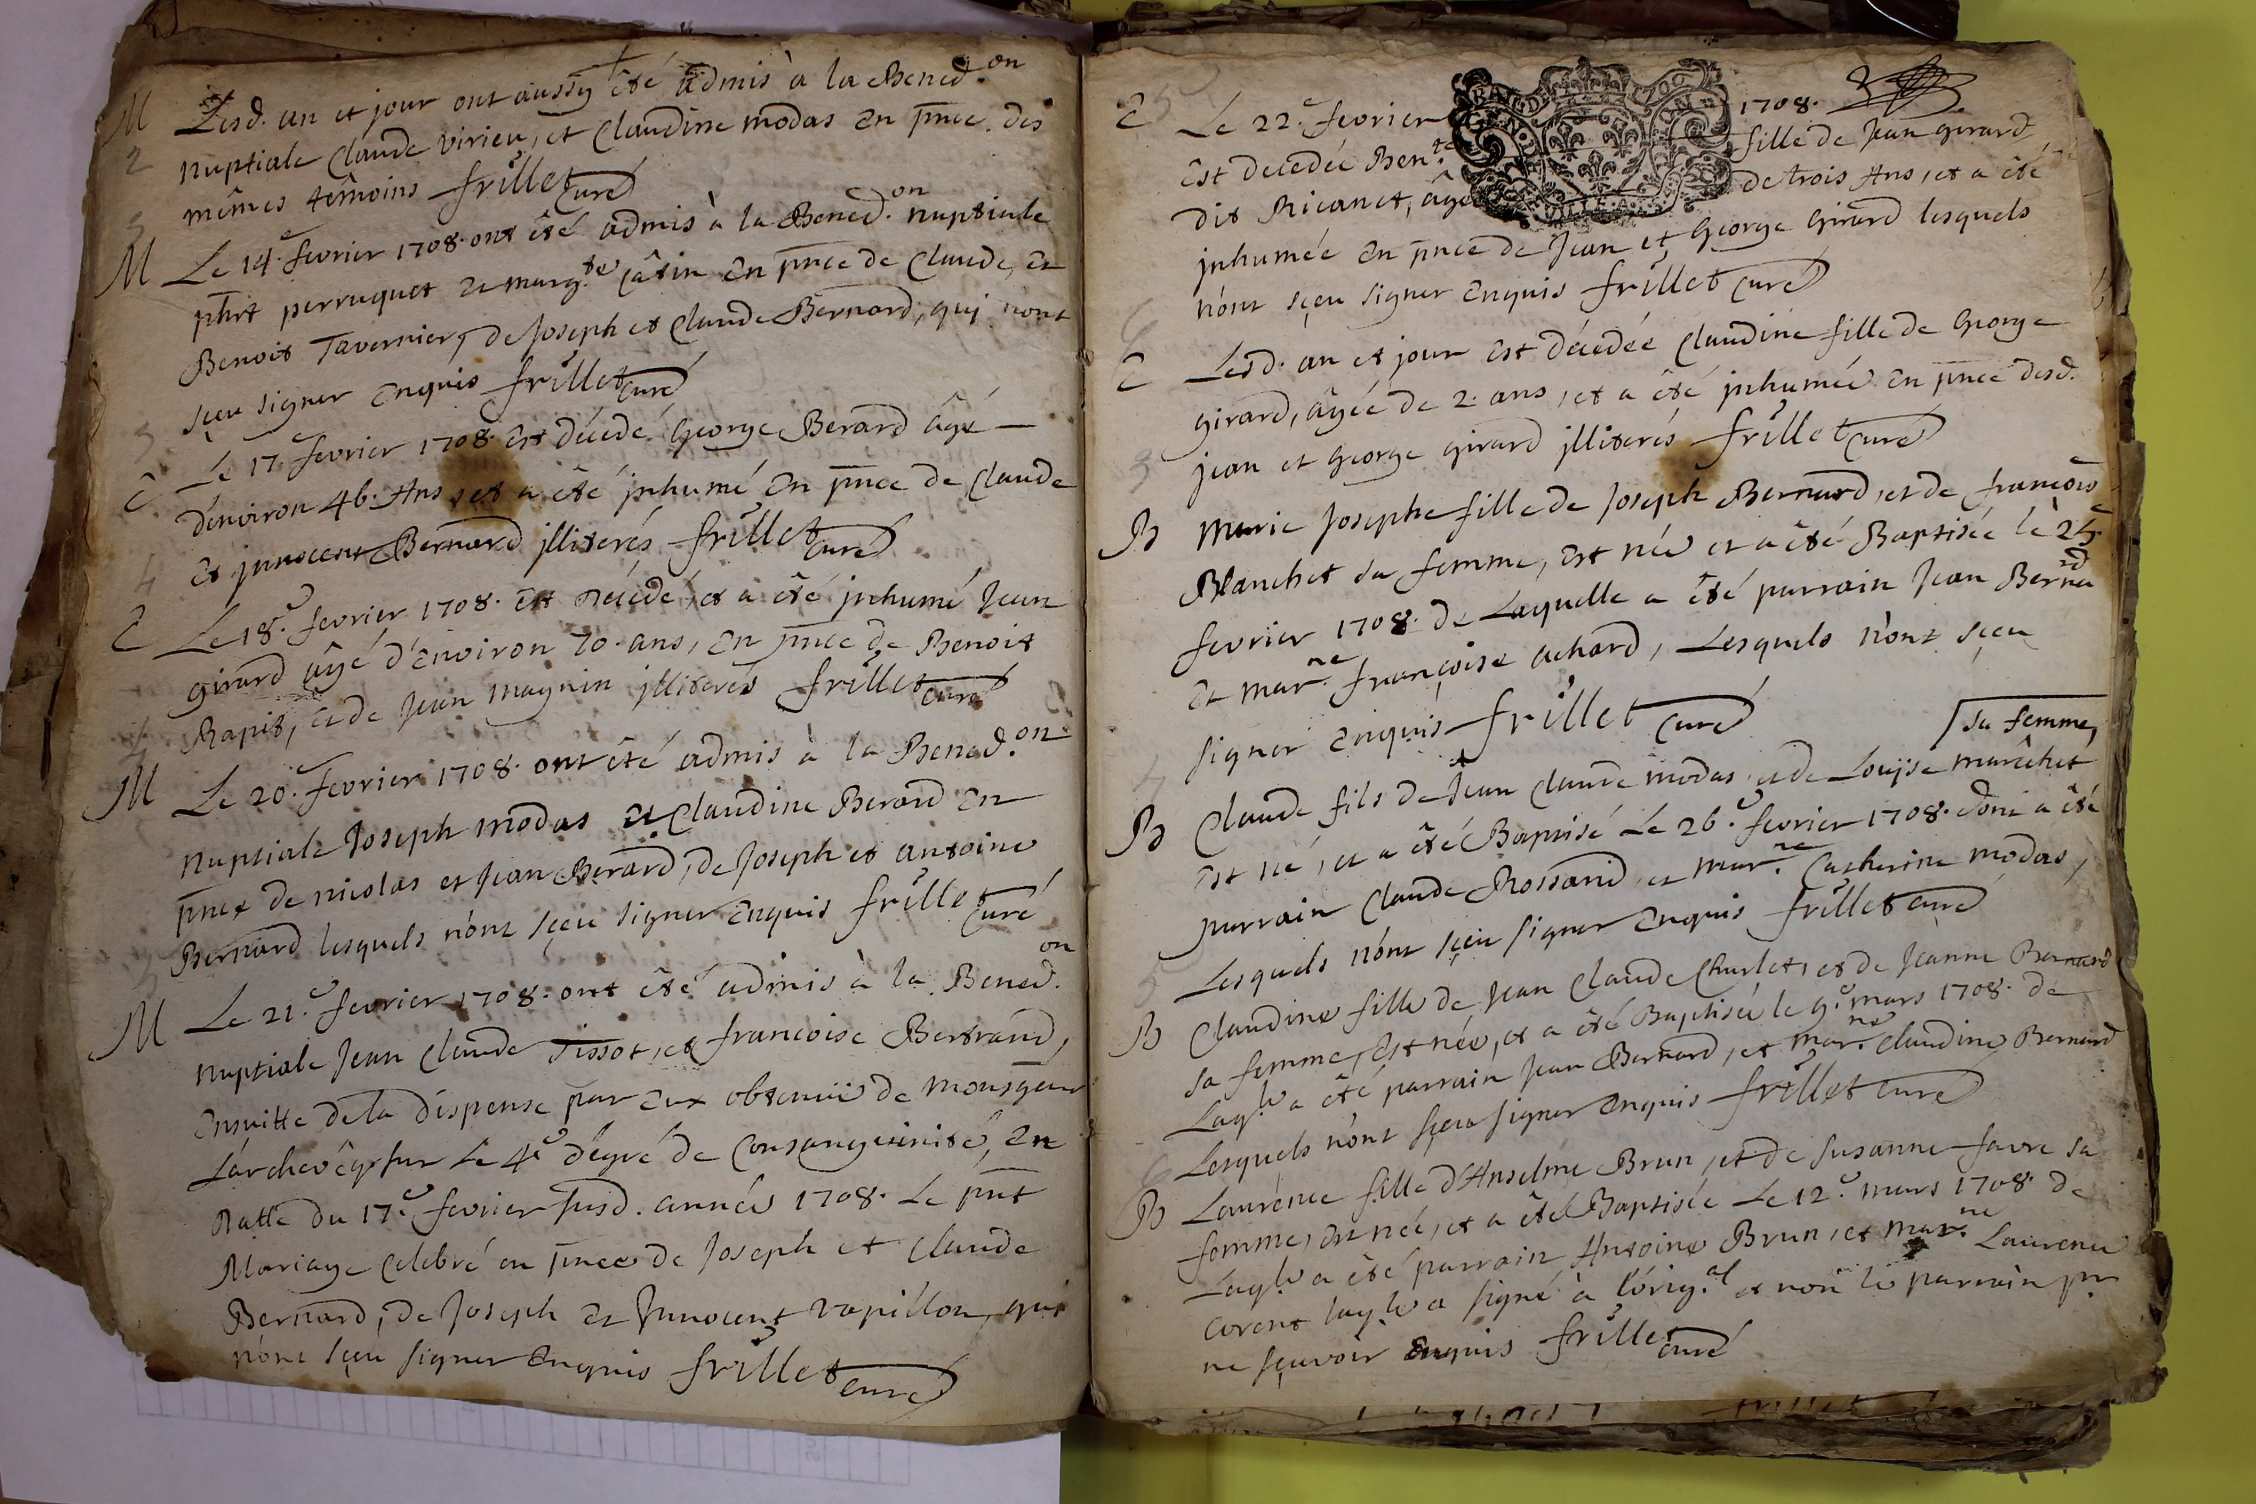 M Lesd. an et jour ont aussy été admis à la Bened.on
2 nuptiale Claude virieu, et Claudine modas en pnce. des
mêmes témoins frillet curé
M Le 14.e fevrier 1708. ont été admis à la Bened.on nuptiale
phrt perruquet et marg.te Câtin en pnce de Claude, et
Benoit Tavernier, de Joseph et Claude Bernard, qui nont
sçeu signer enquis frillet curé
3 Le 17. fevrier 1708. est décedé George Berard âgé
E denviron 46. Ans, et a été jnhumé en pnce de Claude
4 et jnnocent Bernard jlliterés frillet curé
E Le 18.e fevrier 1708. est décedé, et a été jnhumé Jean
girard âgé d'environ 70. ans, en pnce de Benoit
Rapit, et de Jean magnin jlliterés frillet curé
M Le 20.e fevrier 1708. ont été admis à la Bened.on
nuptiale Joseph modas et Claudine Berard en
pnce de nicolas et Jean Berard, de Joseph et antoine
Bernard lesquels n'ont sçeu signer enquis frillet curé
M Le 21.e fevrier 1708. ont été admis à la Bened.on
nuptiale Jean Claude Tissot, et francoise Bertrand,
ensuitte de la dispense par eux obtenüe de monsgeur
Lárchevêq. sur Le 4.e dégré de Consanguinité, en
datte du 17.e fevrier susd. année 1708. Le pnt
Mariage Celebré en pnce de Joseph et Claude
Bernard, de Joseph et Jnnocent vapillon, qui
n'ont sçeu signer enquis frillet curé
1708.
E Le 22.e fevrier
est decedée Ben.te fille de Jean girard
dit Ricanet, âgé de trois Ans, et a été
jnhumée en pnce de Jean et George girard lesquels
n'ont sçeu signer enquis frillet curé
E Lesd. an et jour est décedée Claudine fille de George
girard, âgée de 2. ans, et a été jnhumée en pnce desd.
Jean et George girard jlliterés frillet curé
B Marie Josephe fille de Joseph Bernard, et de françoise
Blanchet sa femme, est née et a été Baptisée le 25.e
fevrier 1708. de Laquelle a été parrain Jean Bernard
et mar.ne françoise achard, Lesquels n'ont sçeu
signer enquis frillet curé
sa femme,
B Claude fils de Jean Claude modas, et de Louise marêchet
est né, et a été Baptisé Le 26.e fevrier 1708. dont a été
parrain Claude Rossand, et mar.ne Catherine modas,
Lesquels n'ont sçeu signer enquis frillet curé
B Claudine fille de Jean Claude Charlet, et de Jeanne Bernard
sa femme, est née, et a été Baptisée le 9.e mars 1708. de
Laq.le a été parrain Jean Bernard, et mar.ne Claudine Bernard
Lesquels n'ont sçeu signer enquis frillet curé
B Laurence fille d'Anselme Brun, et de Susanne favre sa
femme, est née, et a été Baptisée Le 12.e mars 1708. de
Laq.le a été parrain Antoine Brun, et mar.ne Laurence
corent laq.le a signé à l'orig.al et non le parrain pr
ne sçavoir enquis frillet curé